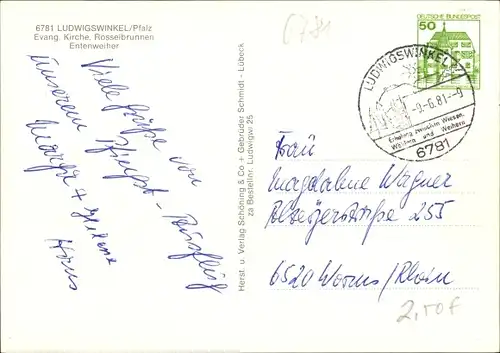 6781 LUDWIGSWINKEL/Pfalz
Evang. Kirche, Rösselbrunnen
Entenweiher
6781
Viele Grüße von
unserem Pfingst-Ausflug
Hans
Herst. u. Verlag Schöning & Co + Gebrüder Schmidt - Lübeck
za Bestellnr. Ludwigwi 25
DEUTSCHE BUNDESPOST
50
LUDWIGSWINKEL
-9-6.81-9
Erholung zwischen Wiesen,
Wäldern und Weihern
6781
Frau
Magdalena Wagner
255
6520 Worms/Rhein
2,50 F